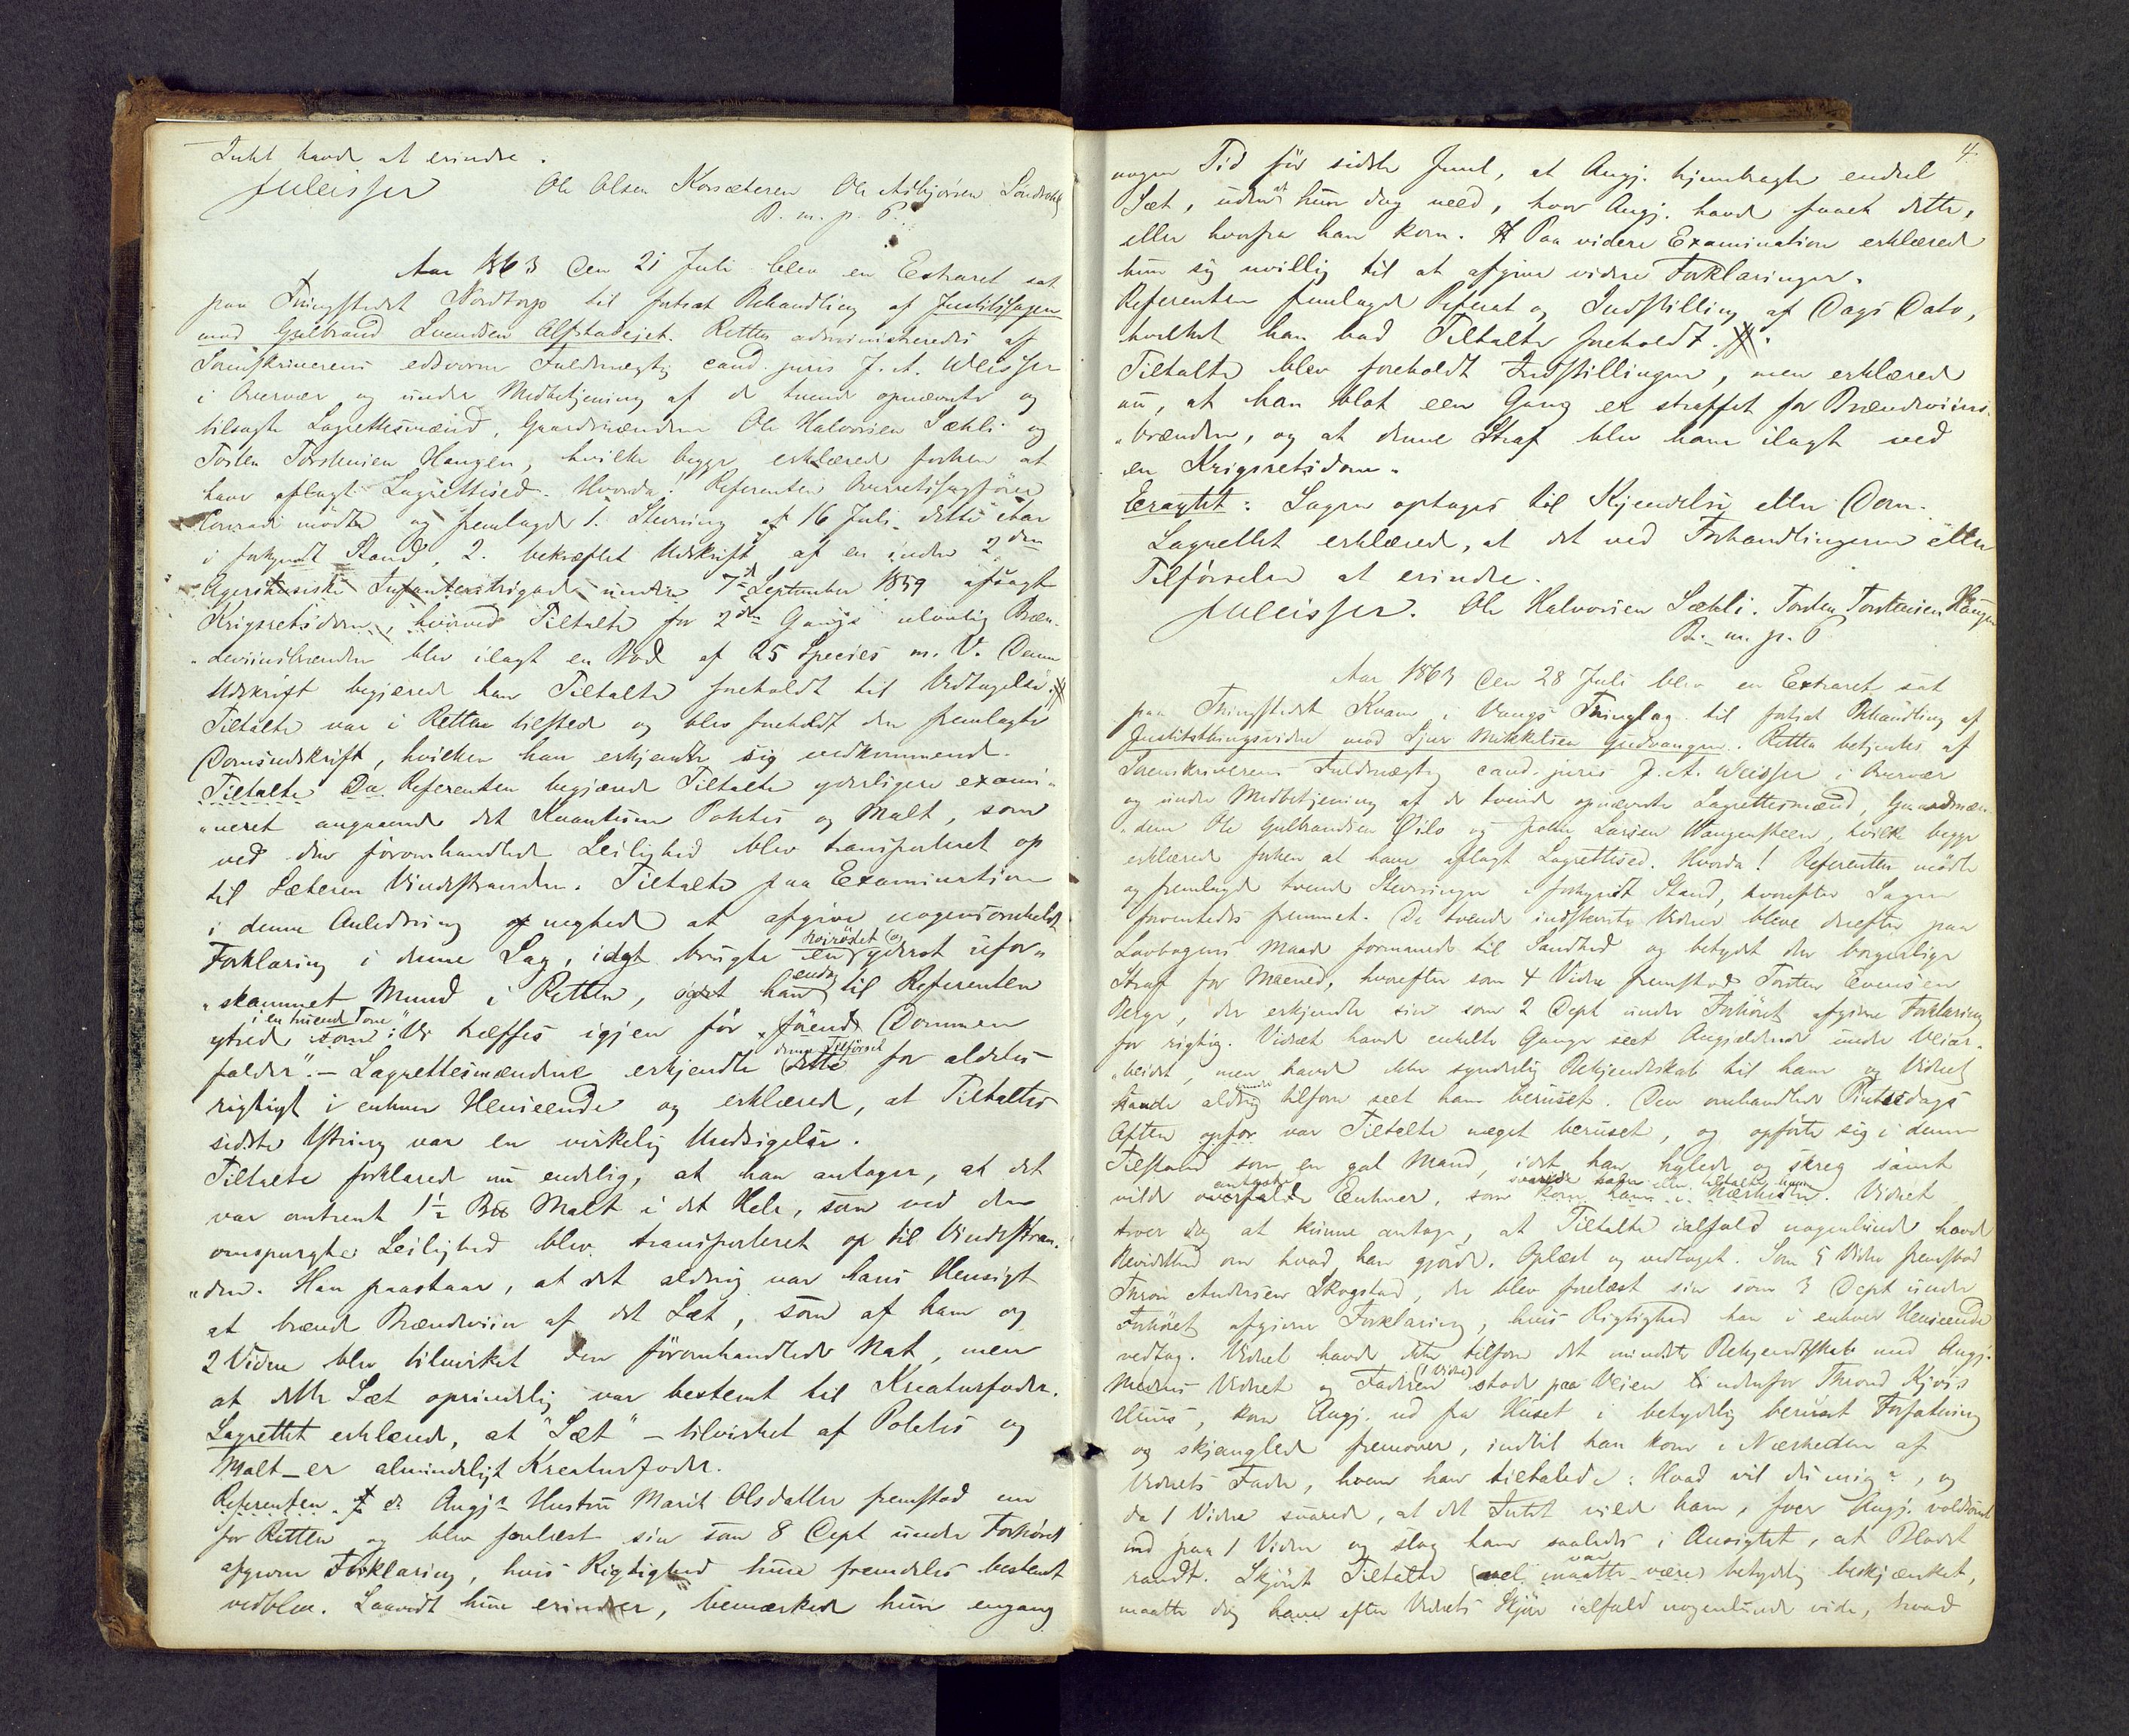 Intet havde at erindre.
JWeisser Ole Olsen Korsæteren Ole Asbjørnsen
B. m. p. P.
Aar 1863 den 21 Juli blev en Extraret sat
paa Thingstedet Nordtorp til fortsat Behandling af Justitssagen
mod Gulbrand Svendsen Alfstadejet. Retten administreredes af
Sorenskriverens edsvorne Fuldmægtig cand. juris J. A. Weisser
i Overvær og under Medbetjening af de tvende opnævnte og
tilsagte Lagrettesmænd, Gaardmændene Ole Halvorsen Sæhli og
Torsten Torstensen Haugen, hvilke begge erklærede forhen at
have aflagt Lagrettesed. Hvorda! Referenten Overretssagfører
Conradi mødte og fremlagde 1. Stevning af 16 Juli dette Aar
i forkyndt Stand, 2. bekræftet Udskrift af en under 2den
Agershusiske Infanteribrigade under 7de September 1859 afsagt
Krigsretsdom, hvorved Tiltalte for 2den Gangs ulovlig Bræn-
deviinsbrænden blev ilagt en Bod af 25 Species m. V. Denne
Udskrift begjærede han Tiltalte foreholdt til Vedtagelse.
Tiltalte var i Retten tilstede og blev foreholdt den fremlagte
Domsudskrift, hvilken han erkjendte sig vedkommende.
Tiltalte Da Referenten begjærede Tiltalte yderligere exami-
neret angaaende det Kvantum Potetes og Malt, som
ved den foromhandlede Leilighed blev transporteret op
til Sæteren Vindstranden. Tiltalte paa Examination
i denne Anledning negtede at afgive nogensomhelst
Forklaring i denne Sag, idet brugte en høirøstet og yderst ufor-
skammet Mund i Retten, han endog til Referenten
ytrede i en truende Tone: "Vi træffes igjen før, førend Dommen
falder". - Lagrettesmændene erkjendte dette denne Tilførsel for aldeles
rigtigt i enhver Henseende og erklærede, at Tiltaltes
sidste Ytring var en virkelig Undsigelse.
Tiltalte forklarede nu endelig, at han antager, at det
var omtrent 1½ Malt i det Hele, som ved den
omspurgte Leilighed blev transporteret op til Vindstran-
den. Han paastaar, at det aldrig var hans Hensigt
at brænde Brændeviin af det Sæt, som af ham og
2 Vidne blev tilvirket den foromhandlede Nat, men
at dette Sæt oprindelig var bestemt til Kreaturfoder.
Lagrettet erklærede, at "Sæt" - tilvirket af Potetes og
Malt - er almindeligt Kreaturfoder.
Referenten. Angj.s Hustru Marit Olsdatter fremstod nu
for Retten og blev forelæst sin som 8 Dept under Forhøret
afgivne Forklaring, hvis Rigtighed hun fremdeles bestemt
vedblev. Saavidt hun erindrer, bemærkede hun engang
4.
nogen Tid før sidste Juul, at Angj. hjembragte endeel
Sæt, uden at hun dog veed, hvor Angj. havde faaet dette,
eller hvorfra han kom. Paa videre Examination erklærede
hun sig uvillig til at afgive videre Forklaringer.
Referenten fremlagde Referat og Indstilling af Dags Dato,
hvilket han bad Tiltalte foreholdt.
Tiltalte blev foreholdt Indstillingen, men erklærede
nu, at han blot een Gang er straffet for Brændeviins-
brænden, og at denne Straf blev ham ilagt ved
en Krigsretsdom.
Eragtet: Sagen optages til Kjendelse eller Dom.
Lagrettet erklærede, at det ved Forhandlingerne eller
Tilførselen at erindre.
JWeisser. Ole Halvorsen Sæhli. Torsten Torstensen Haugen
B. m. p. P.
Aar 1863 den 28 Juli blev en Extraret sat
paa Thingstedet Kvam i Vangs Thinglag til fortsat Behandling af
Justitsthingsvidne mod Sjur Mikkelsen Gudvangen. Retten betjentes af
Sorenskriverens Fuldmægtig cand. juris J. A. Weisser i Overvær
og under Medbetjening af de tvende opnævnte Lagrettesmænd, Gaardmæn-
dene Ole Gulbrandsen Øilo og Larsen Wangensteen, hvilke begge
erklærede forhen at have aflagt Lagrettesed. Hvorda! Referenten mødte
og fremlagde tvende Stevninger i forkyndt Stand, hvorefter Sagen
forventedes fremmet. De tvende indstevnte Vidner bleve derefter paa
Lovbogens Maade formanede til Sandhed og betydet den borgerlige
Straf for Meened, hvorefter som 4 Vidne fremstod Torsten Evensen
Berge, der erkjendte sin som 2 Dept under Forhøret afgivne Forklaring
for rigtig. Vidnet havde enkelte Gange seet Angjældende under Veiar-
beidet, men havde ikke synderlig Bekjendtskab til ham og Vidnet
havde aldrig tilforn seet ham beruset. Den omhandlede Pintsedags
Aften var Tiltalte meget beruset, og opførte sig i denne
Tilstand som en gal Mand, idet han hylede og skreg samt
vilde antaste Enhver, som svarede ham eller tiltalte ham. Vidnet
troer dog at kunne antage, at Tiltalte ialfald nogenlunde havde
Bevidsthed om hvad han gjorde. Oplæst og vedtaget. Som 5 Vidne fremstod
Thron Andersen Skogstad, der blev forelæst sin som 3 Dept under
Forhøret afgivne Forklaring, hvis Rigtighed han i enhver Henseende
vedtog. Vidnet havde ikke tilforn det mindste Bekjendtskab med Angj.
Medens Vidnet og Faderen (1 Vidne) stod paa Veien udenfor Thrond Kjøs
Huus, kom Angj. ud fra Huset i betydelig beruset Forfatning
og skjanglede fremover, indtil han kom i Nærheden af
Vidnets Fader, hvem han tiltalede: Hvad vil du mig?, og
da 1 Vidne svarede, at det Intet vilde ham, foer Angj. voldsomt
ind paa 1 Vidne og slog ham saaledes i Ansigtet, at Blodet
randt. Skjønt Tiltalte var betydelig beskjænket,
maatte dog have efter Vidnets Skjøn ialfald nogenlunde vide, hvad